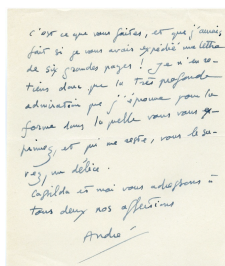 c'est ce que vous faites, et que j'aurais
fait si je vous avais expédié une lettre
de six grandes pages ! Je n'en re-
tiens donc que la très profonde
admiration que j'éprouve pour la
forme dans laquelle vous vous ex-
primez, et qui me reste, vous le sa-
vez, un délice.
Casilda et moi vous adressons à
tous deux nos affections
André